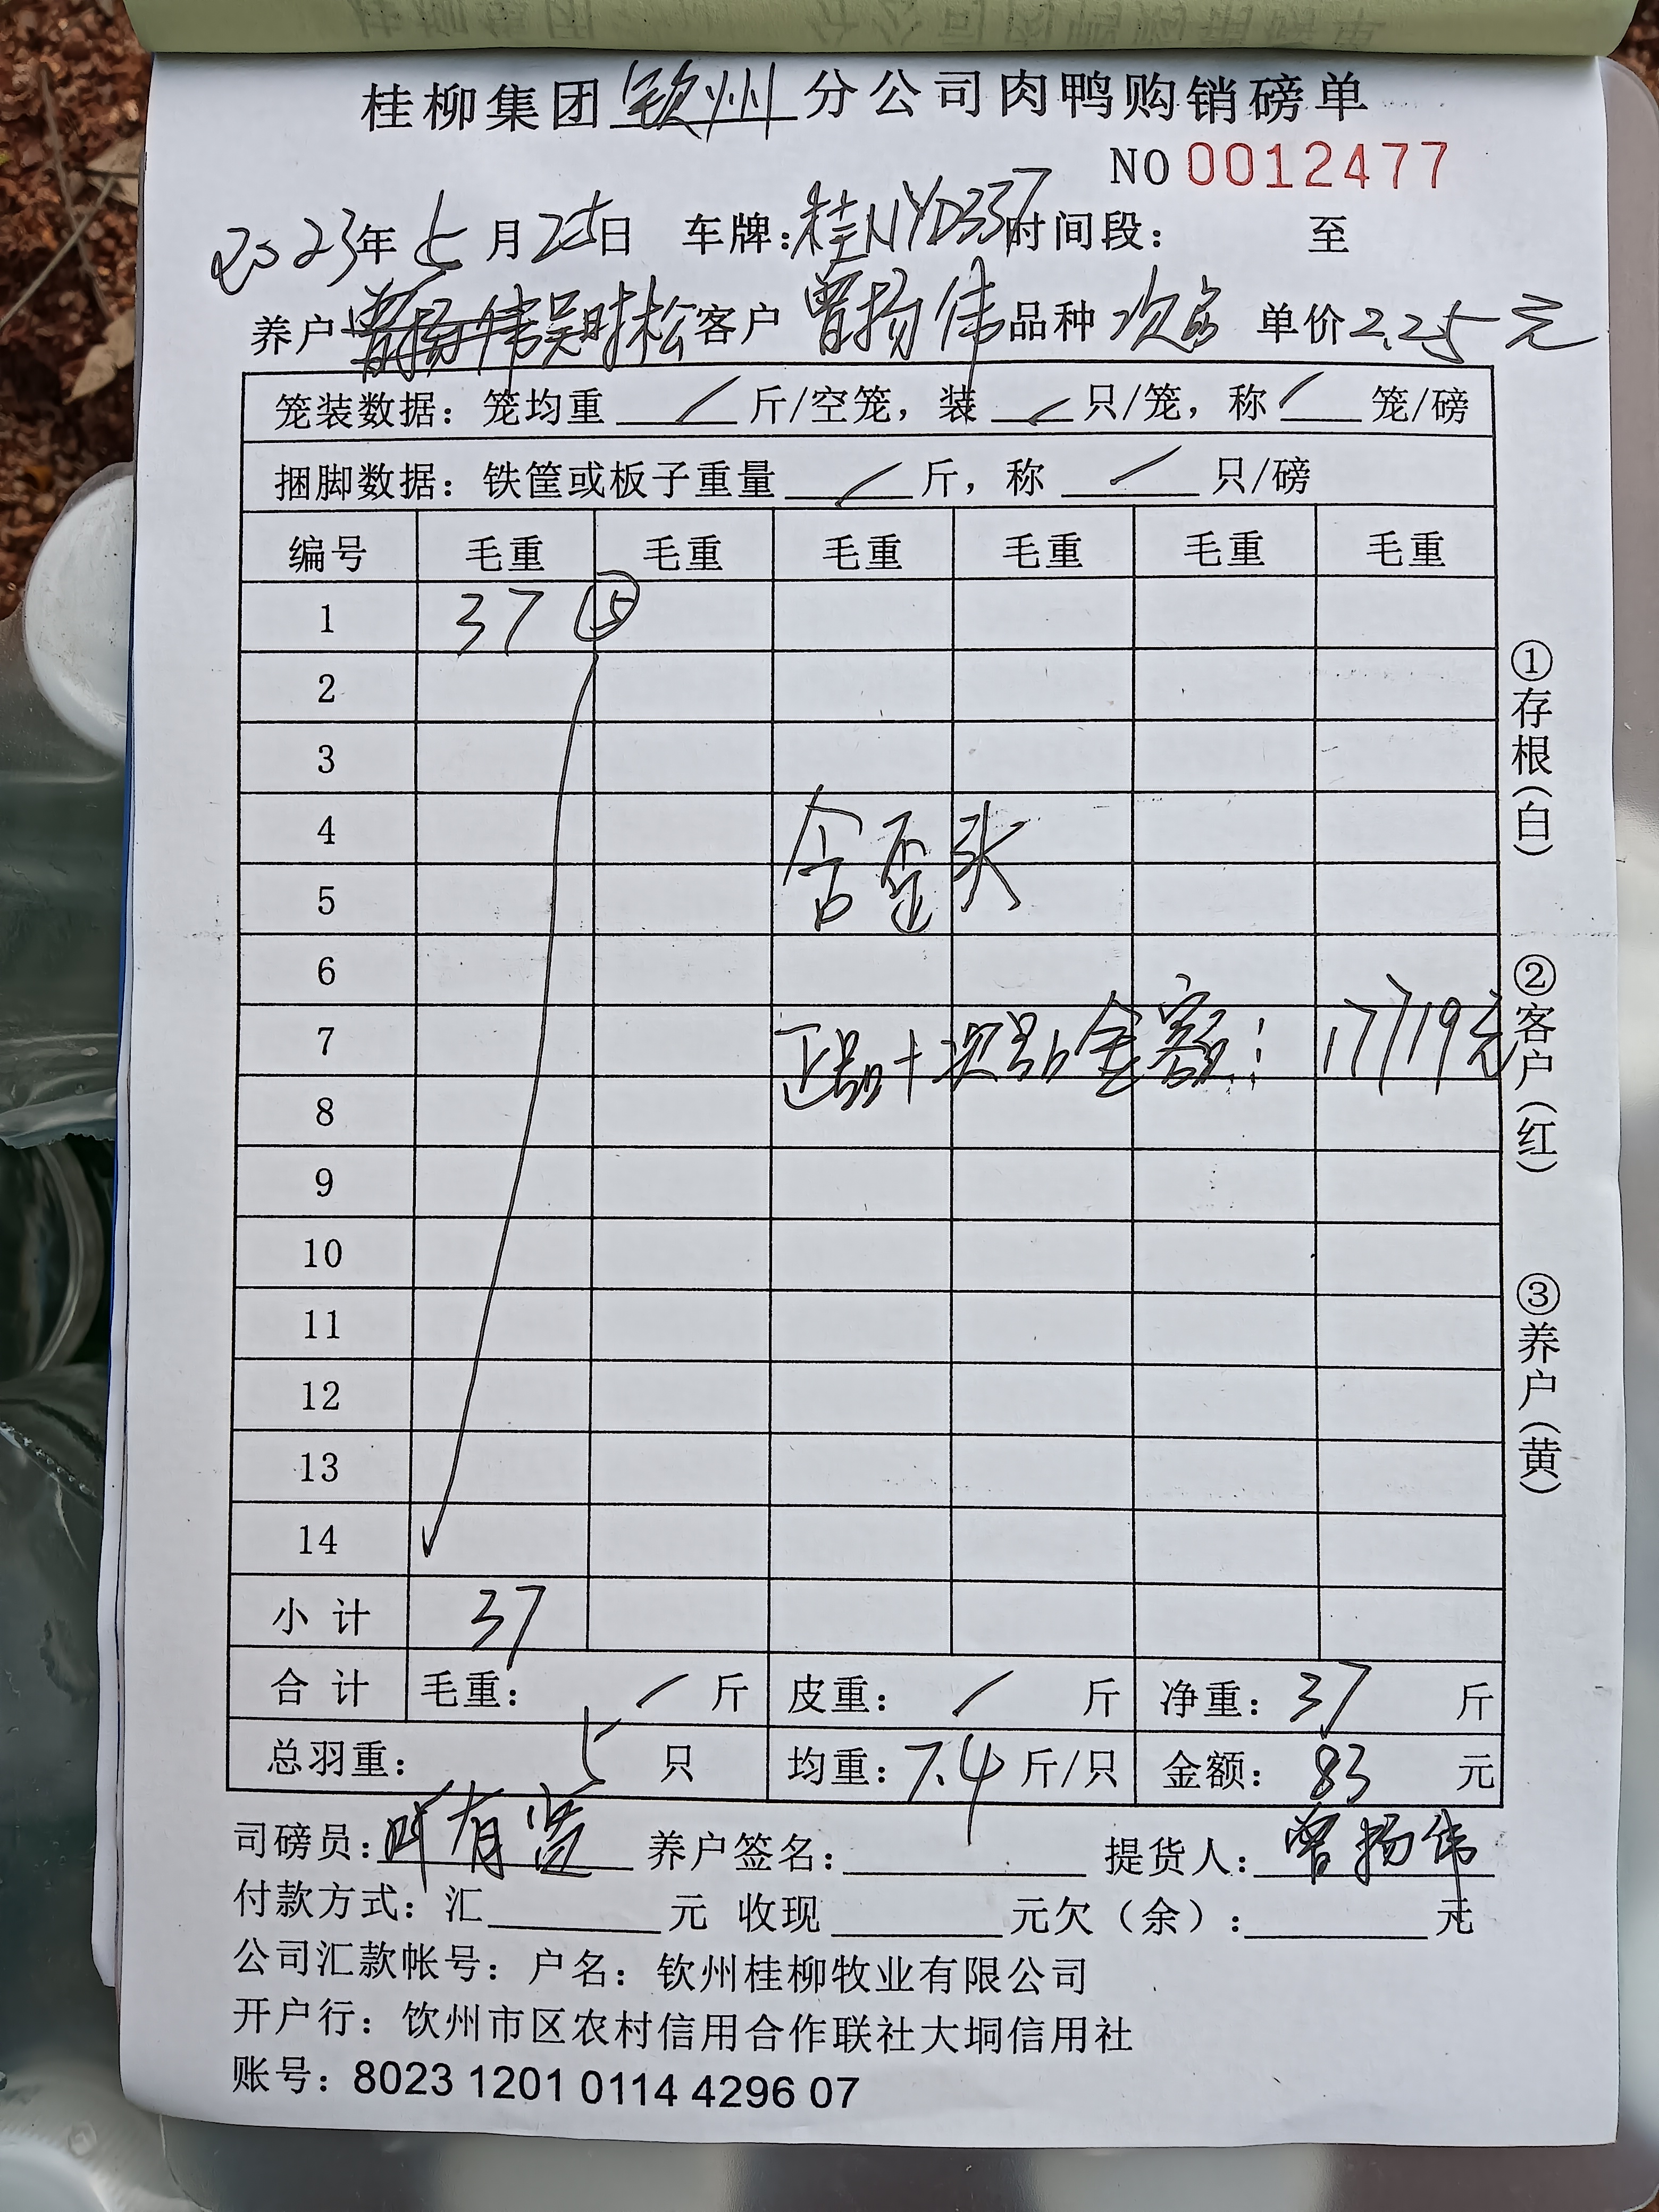 桂柳集团钦州分公司肉鸭购销磅单
NO 0012477
2023年5月25日 车牌:桂NYD337时间段: 至
养户 曾扬伟 吴时松 客户 曾扬伟 品种 次品 单价2.25元
笼装数据: 笼均重 / 斤/空笼, 装 / 只/笼, 称 / 笼/磅
捆脚数据: 铁筐或板子重量 / 斤, 称 / 只/磅
编号 毛重 毛重 毛重 毛重 毛重 毛重
1 37 ⑤
2
3
4
含歪头
5
6
7 正品+次品金额: 17719元
8
9
10
11
12
13
14
小计 37
合计 毛重: / 斤 皮重: / 斤 净重: 37 斤
总羽重: 5 只 均重: 7.4 斤/只 金额: 83 元
司磅员: 有 养户签名: 提货人: 曾扬伟
付款方式: 汇 元 收现 元欠(余): 元
公司汇款帐号: 户名: 钦州桂柳牧业有限公司
开户行: 钦州市区农村信用合作联社大垌信用社
账号: 8023 1201 0114 4296 07
①存根(白)
②客户(红)
③养户(黄)